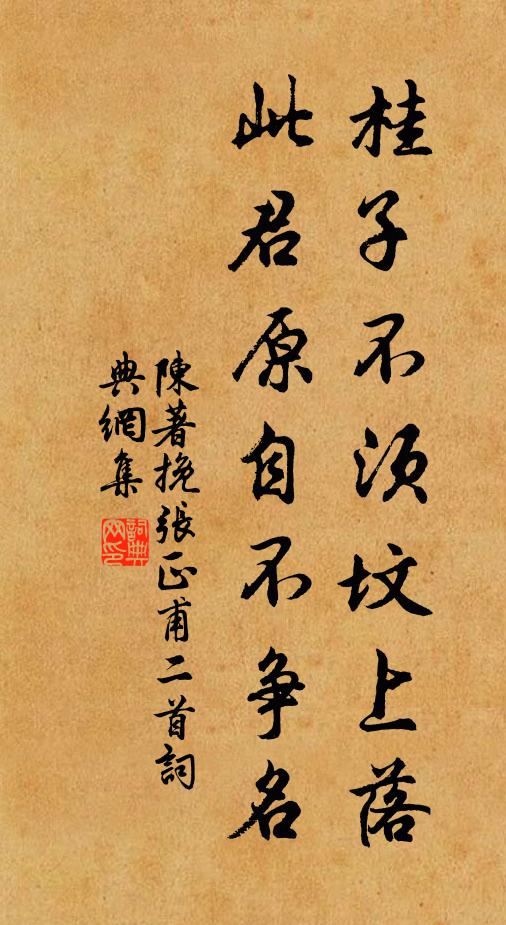 桂子不须坟上落
此君原自不争名
陳著挽張正甫二首詞
典網集
詞典網印